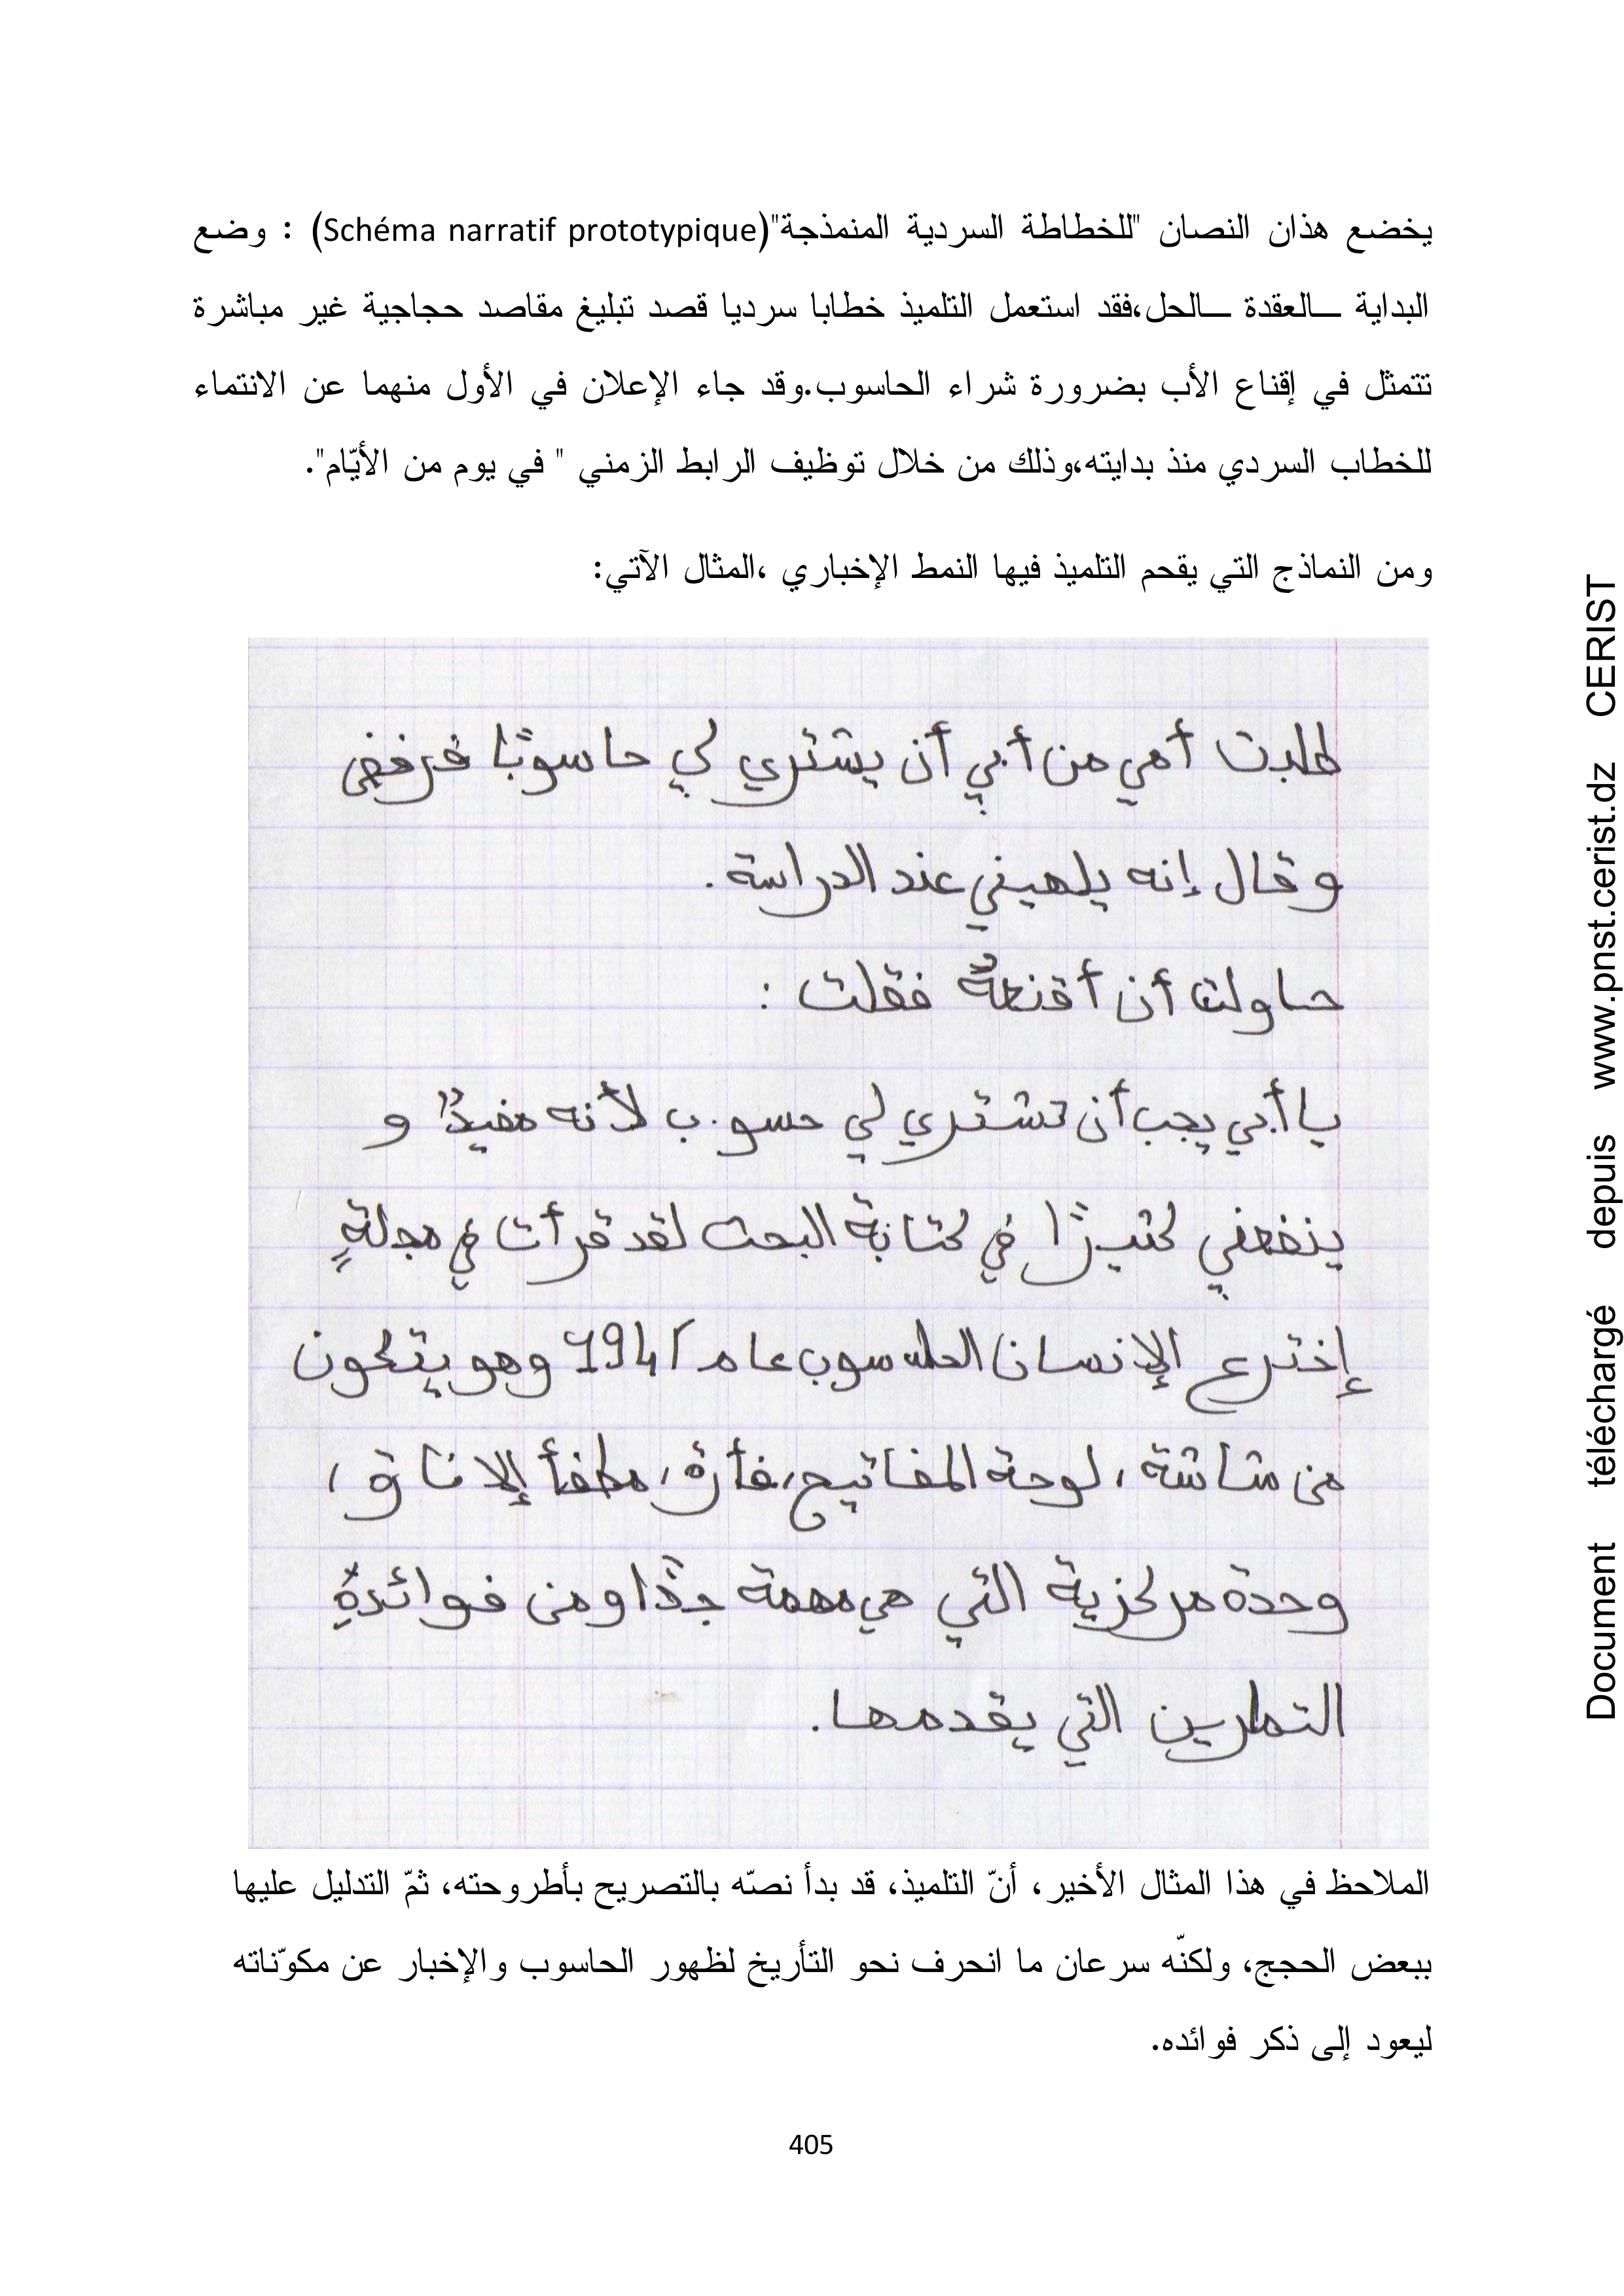 يخضع هذان النصان "للخطاطة السردية المنمذجة"(Schéma narratif prototypique) : وضع
البداية ــالعقدة ــالحل،فقد استعمل التلميذ خطابا سرديا قصد تبليغ مقاصد حجاجية غير مباشرة
تتمثل في إقناع الأب بضرورة شراء الحاسوب.وقد جاء الإعلان في الأول منهما عن الانتماء
للخطاب السردي منذ بدايته،وذلك من خلال توظيف الرابط الزمني " في يوم من الأيّام".
ومن النماذج التي يقحم التلميذ فيها النمط الإخباري ،المثال الآتي:
طلبت أمي من أبي أن يشتري لي حاسوبًا فرفض
و قال إنه يلهيني عند الدراسة .
حاولت أن أقنعهُ فقلت :
يا أبي يجب أن تشتري لي حسوب لأنه مفيدٌ و
ينفعني كثيرًا في كتابة البحث لقد قرأت في مجلةٍ
إخترع الإنسان الحاسوب عام 1941 وهو يتكون
من شاشة ، لوحة المفاتيح، فأرة، مطفأ إلا ناق ،
وحدة مركزية التي هي مهمة جدًا ومن فوائدهِ
التمارين التي يقدمها.
الملاحظ في هذا المثال الأخير، أنّ التلميذ، قد بدأ نصّه بالتصريح بأطروحته، ثمّ التدليل عليها
ببعض الحجج، ولكنّه سرعان ما انحرف نحو التأريخ لظهور الحاسوب والإخبار عن مكوّناته
ليعود إلى ذكر فوائده.
405
Document téléchargé depuis www.pnst.cerist.dz CERIST